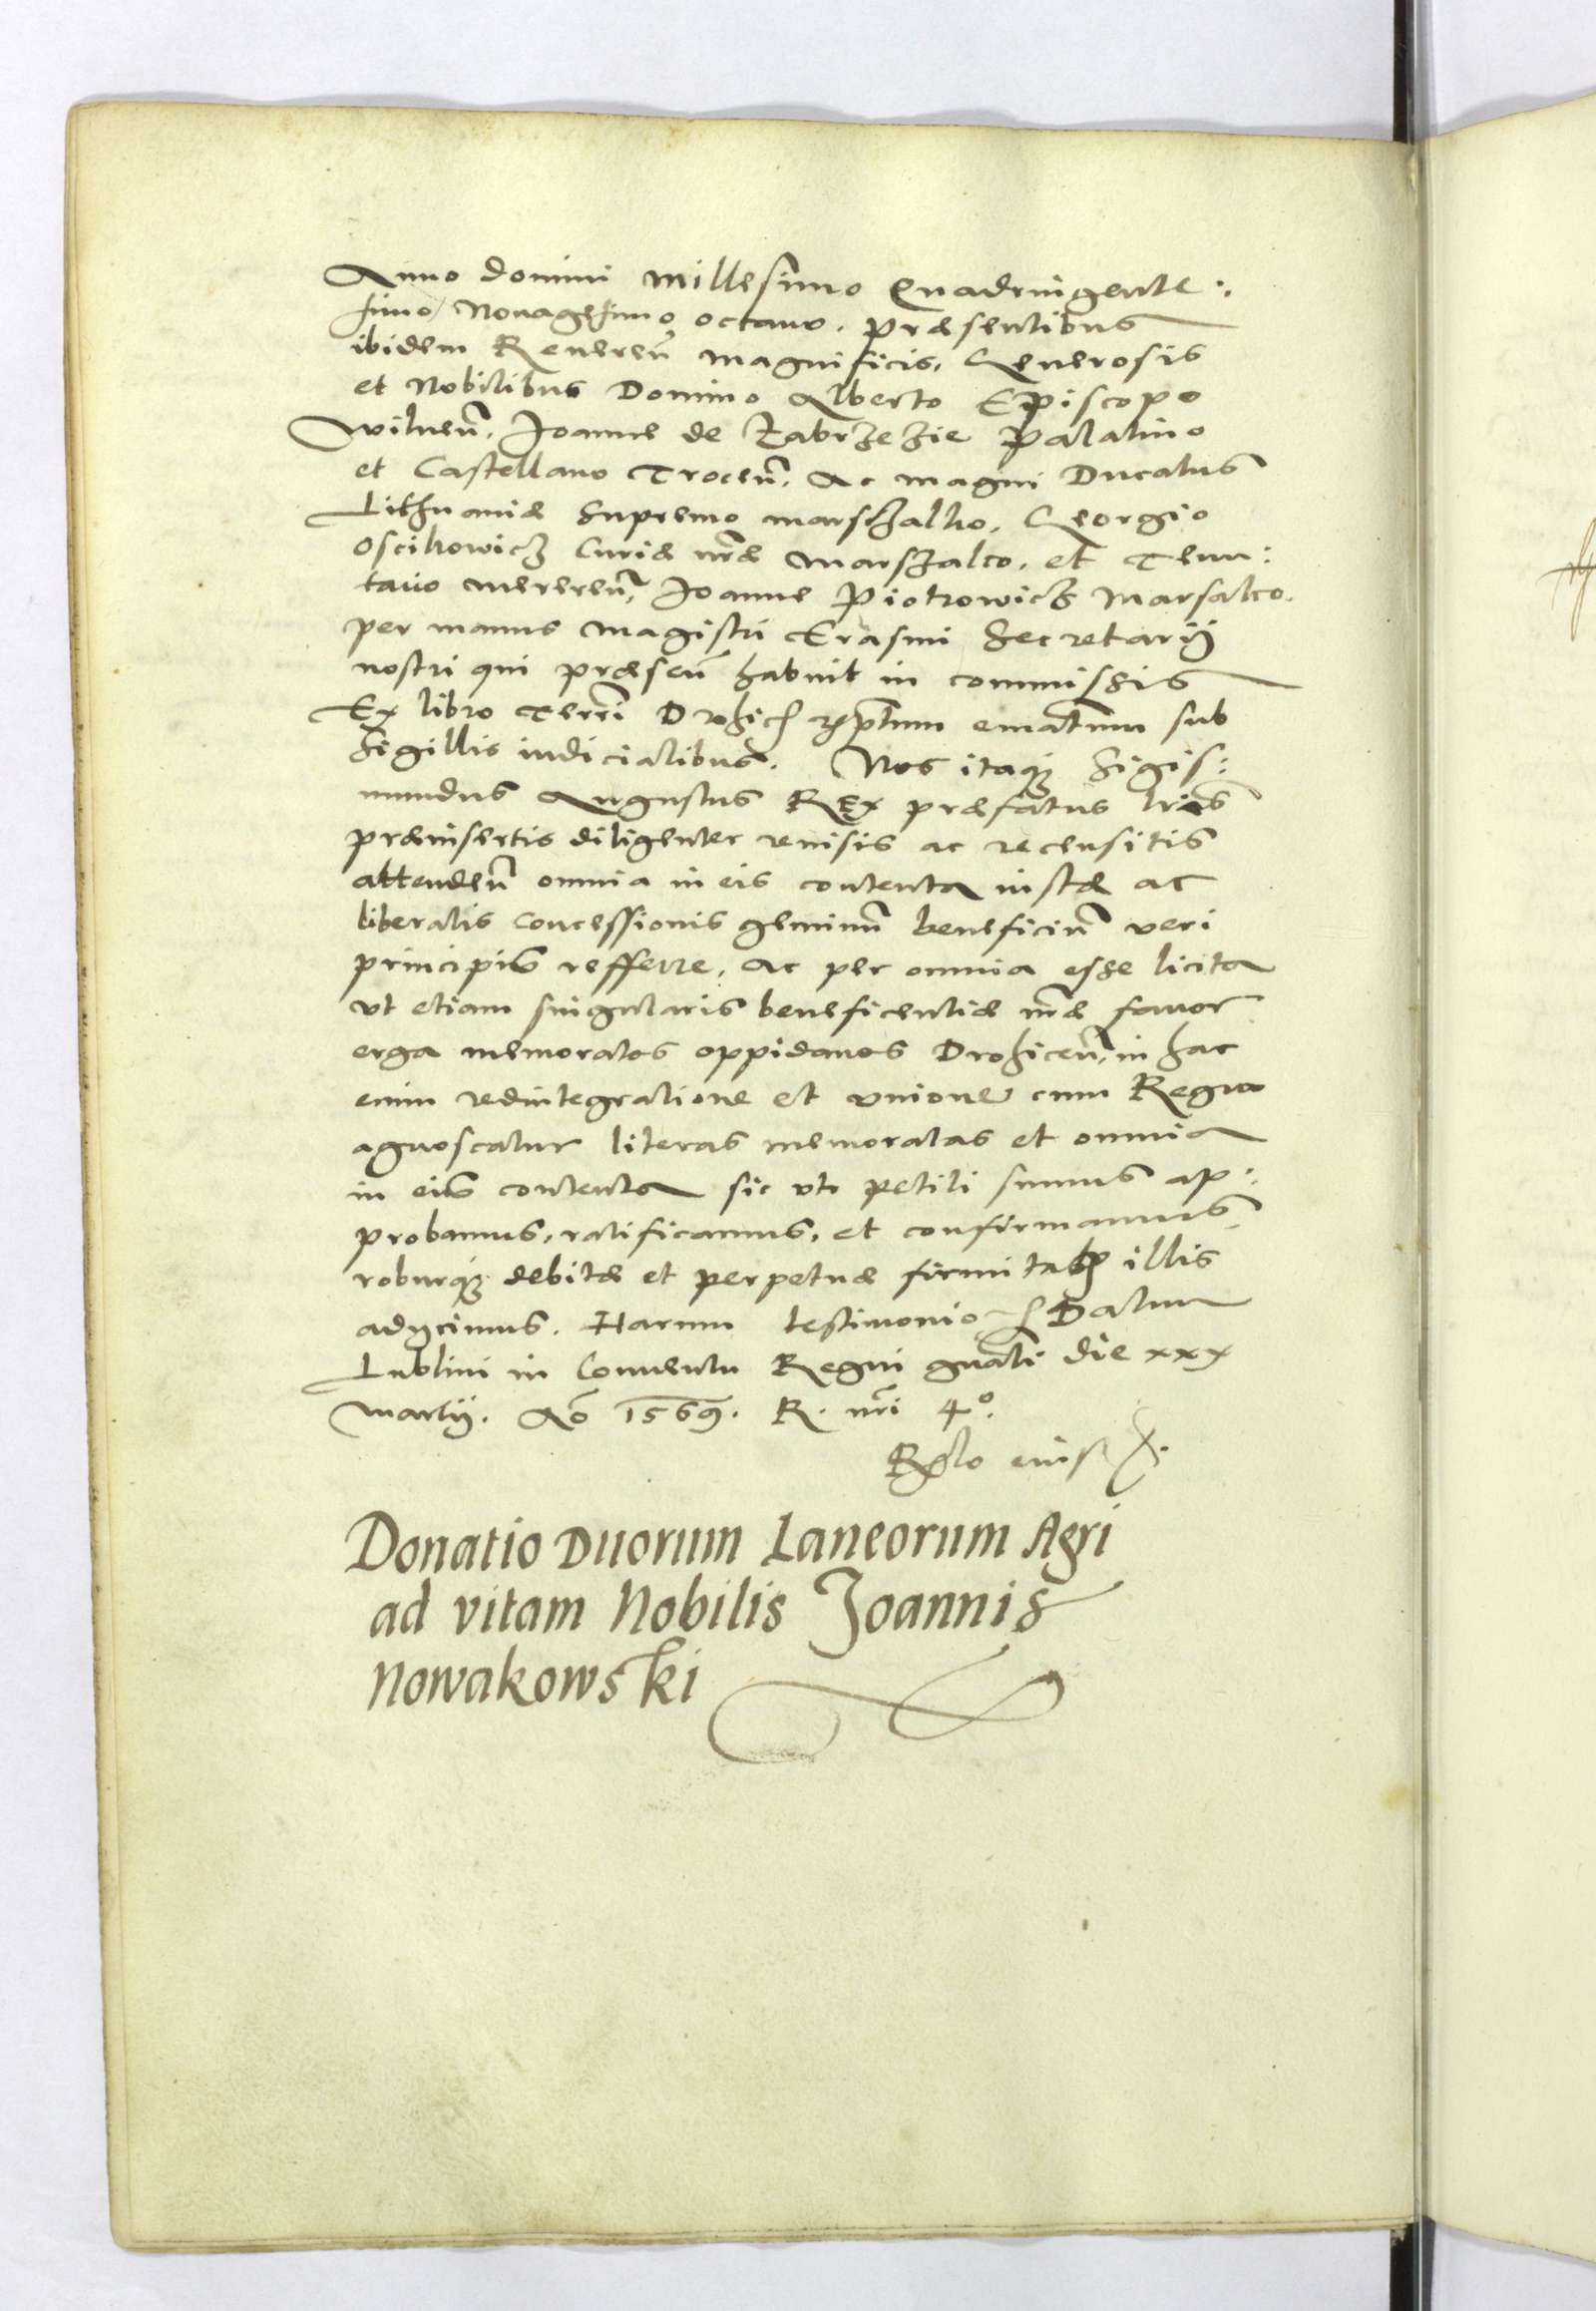 Anno domini Millesimo Quadringente:
simo Nonagesimo octauo. Præsentibus
ibidem Reueren͂ Magnificis, Generosis
et Nobilibus Domino Alberto Episcopo
Wilnen͂. Joanne de Zabrzezie Palatino
et Castellano Trocen͂. Ac magni Ducatus
Lithuaniæ Supremo marschalko, Georgio
Oscikowicz Curiæ nr͂æ Marszalco. et Tenu:
tario Mereren͂, Joanne Piotrowicz Marsalco.
per manus Magistri Erasmi Secretarij
nostri qui præsen͂ habuit in commissis
Ex libro Terr͂i Drohic͂ ematum sub
Sigillis iudicialibus. Nos itaq; Sigis:
mundus Augustus Rex præfatus lr͂is
præinsertis diligenter reuisis ac recensitis
attenden͂ omnia in eis contenta iustæ ac
liberalis concessionis geminum͂ beneficium͂ veri
principis refferre, ac per omnia esse licita
vt etiam singularis beneficentiæ nr͂æ fauor
erga memoratos oppidanos Drohicen͂, in hac
enim redintegratione et vnione cum Regno
agnoscatur literas memoratas et omnia
in eis contenta sic vti petiti sumus ap:
probamus, ratificamus, et confirmamus
roburq; debitæ et perpetuæ firmitatis illis
adijcimus. Harum testimonio Datum
Lublini in Conuentu Regni gn͂ali die xxx
Martij. Ao͂ 1569. R. nr͂i 40.
Donatio Duorum Laneorum Agri
ad vitam Nobilis Joannis
Nowakowski